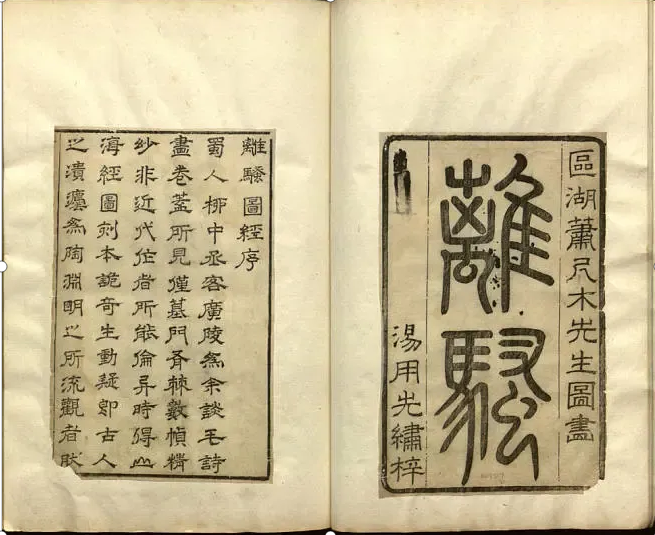 區湖蕭尺木先生圖畫
離騷
湯用先繡梓
離騷圖經序
蜀人柳中丞客廣陵爲余談毛詩
畫卷蓋所見僅墓門有棘數幀精
紗非近代作者所能倫异時得山
海經圖刻本詭奇生動疑即古人
之爲陶淵明之所流觀者肰